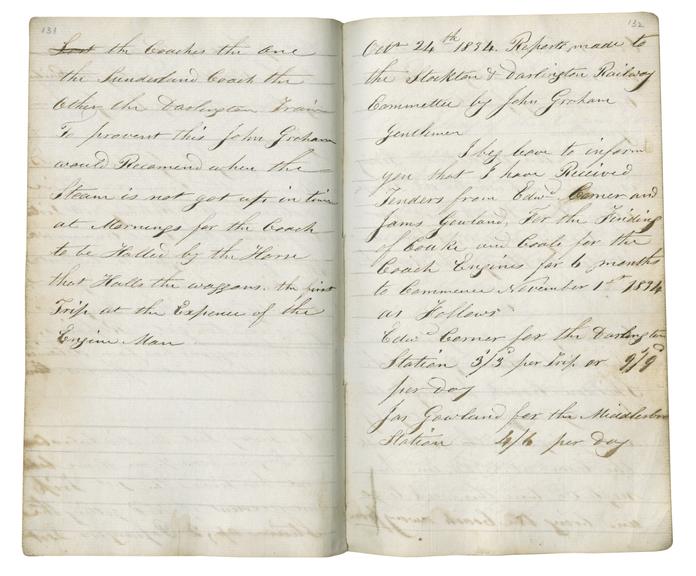 131
Lost the Coaches the one
the Sunderland Coach the
Other the Darlington Train
To prevent this John Graham
would Recomend where the
Steam is not got up in time
at Mornings for the Coach
to be Halled by the Horse
that Halls the waggons. the first
Trip at the Expence of the
Engine Man
132
Octr 24th 1834. Reports made to
the Stockton & Darlington Railway
Committee by John Graham
Gentlemen
I beg leave to inform
you that I have Received
Tenders from Edwd Corner and
Jams Gowland, For the Finding
of Coake and Coals for the
Coach Engines for 6 months
to Commence November 1st 1834
as Follows
Edwd Corner for the Darlington
Station 3/3d per Trip or 9/9d
per day
Jas Gowland for the Middlesbro
Station 4/6 per Day